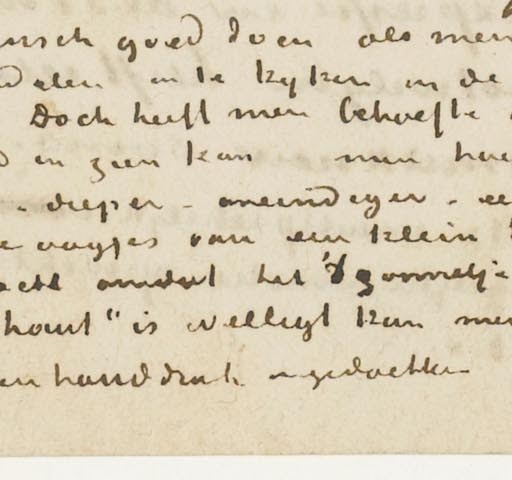 ensch goed doen als men
delen en te kyken in de
Doch heeft men behoefte
en zien kan men hoe
dieper – oneindiger – ee
e oogjes van een klein
acht omdat het 't zonnetje
hout" is welligt kan men
en handdruk in gedachten